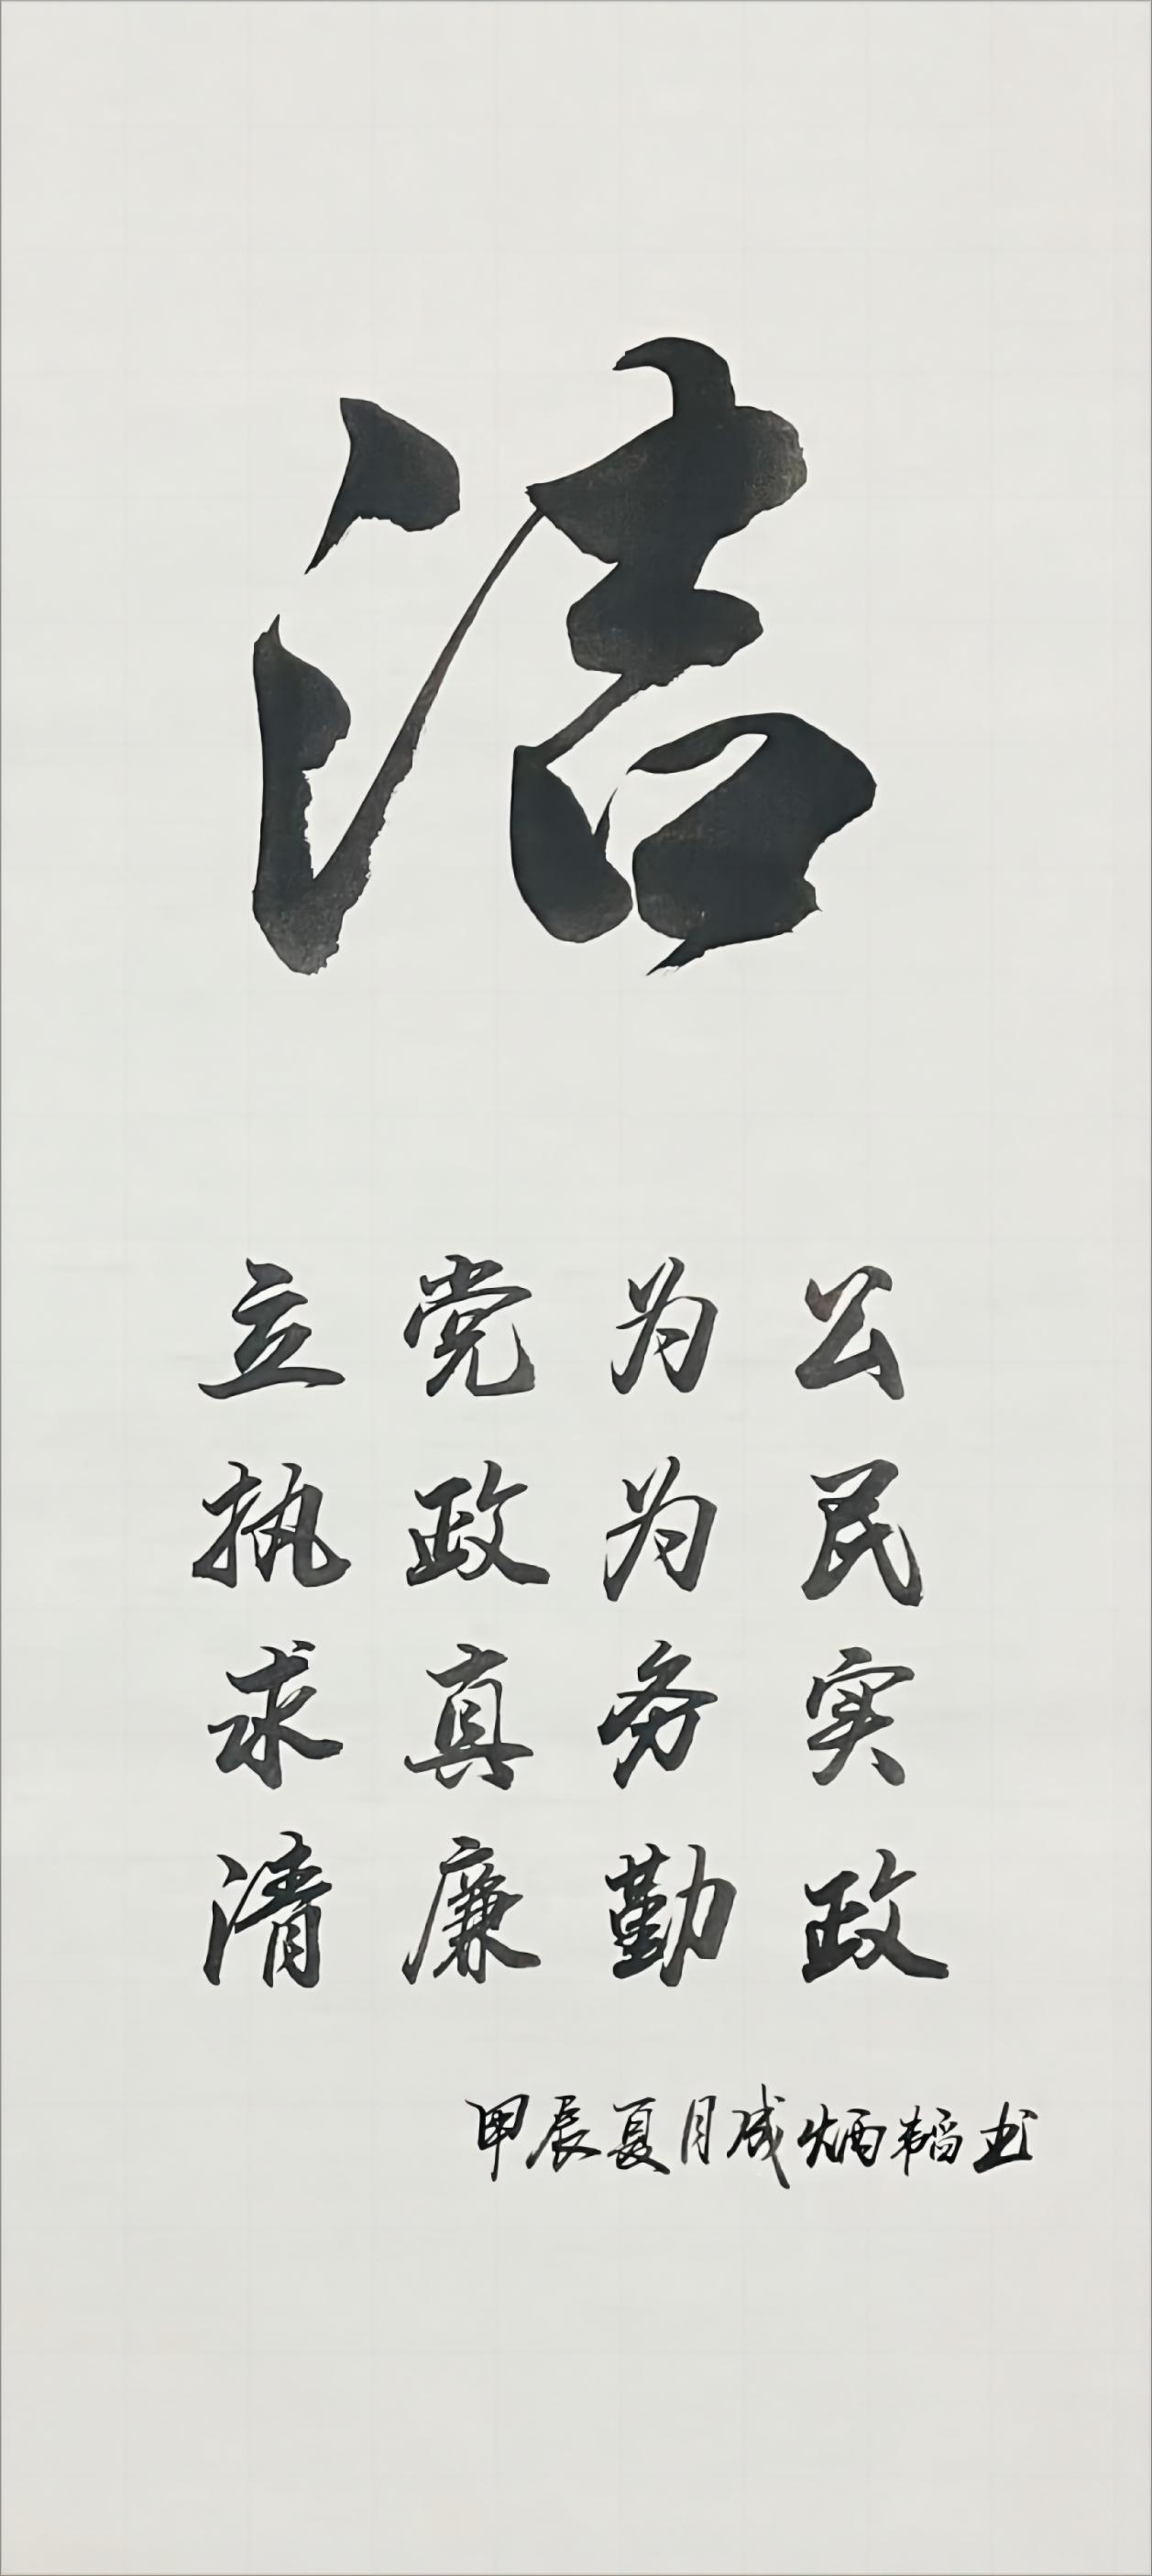 洁
立党为公
执政为民
求真务实
清廉勤政
甲辰夏月成炳韬书